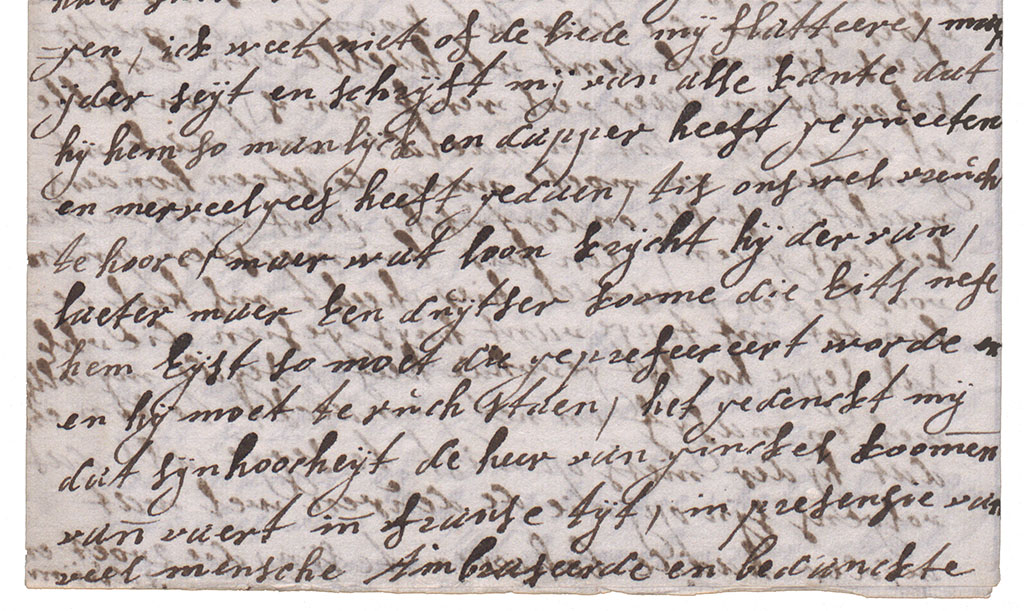 gen, ick weet niet of de liede mij flatteere, maer
ijder seijt en schrijft mij van alle kante dat
hij hem so manlijck en dapper heeft gequeeten
en merveeljees heeft gedaen, tis ons wel vreuch
te hoore, maer wat loon krijcht hij der van,
laeter maer een duijtser koome die iits nefe
hem kijst so moet die geprefereert worde en
en hij moet te ruch staen, het gedenckt mij
dat sijn hoocheijt de heer van ginckel koomen
van vaert in franse tijt, in presensie van
veel mensche Ambraseerde en bedanckte